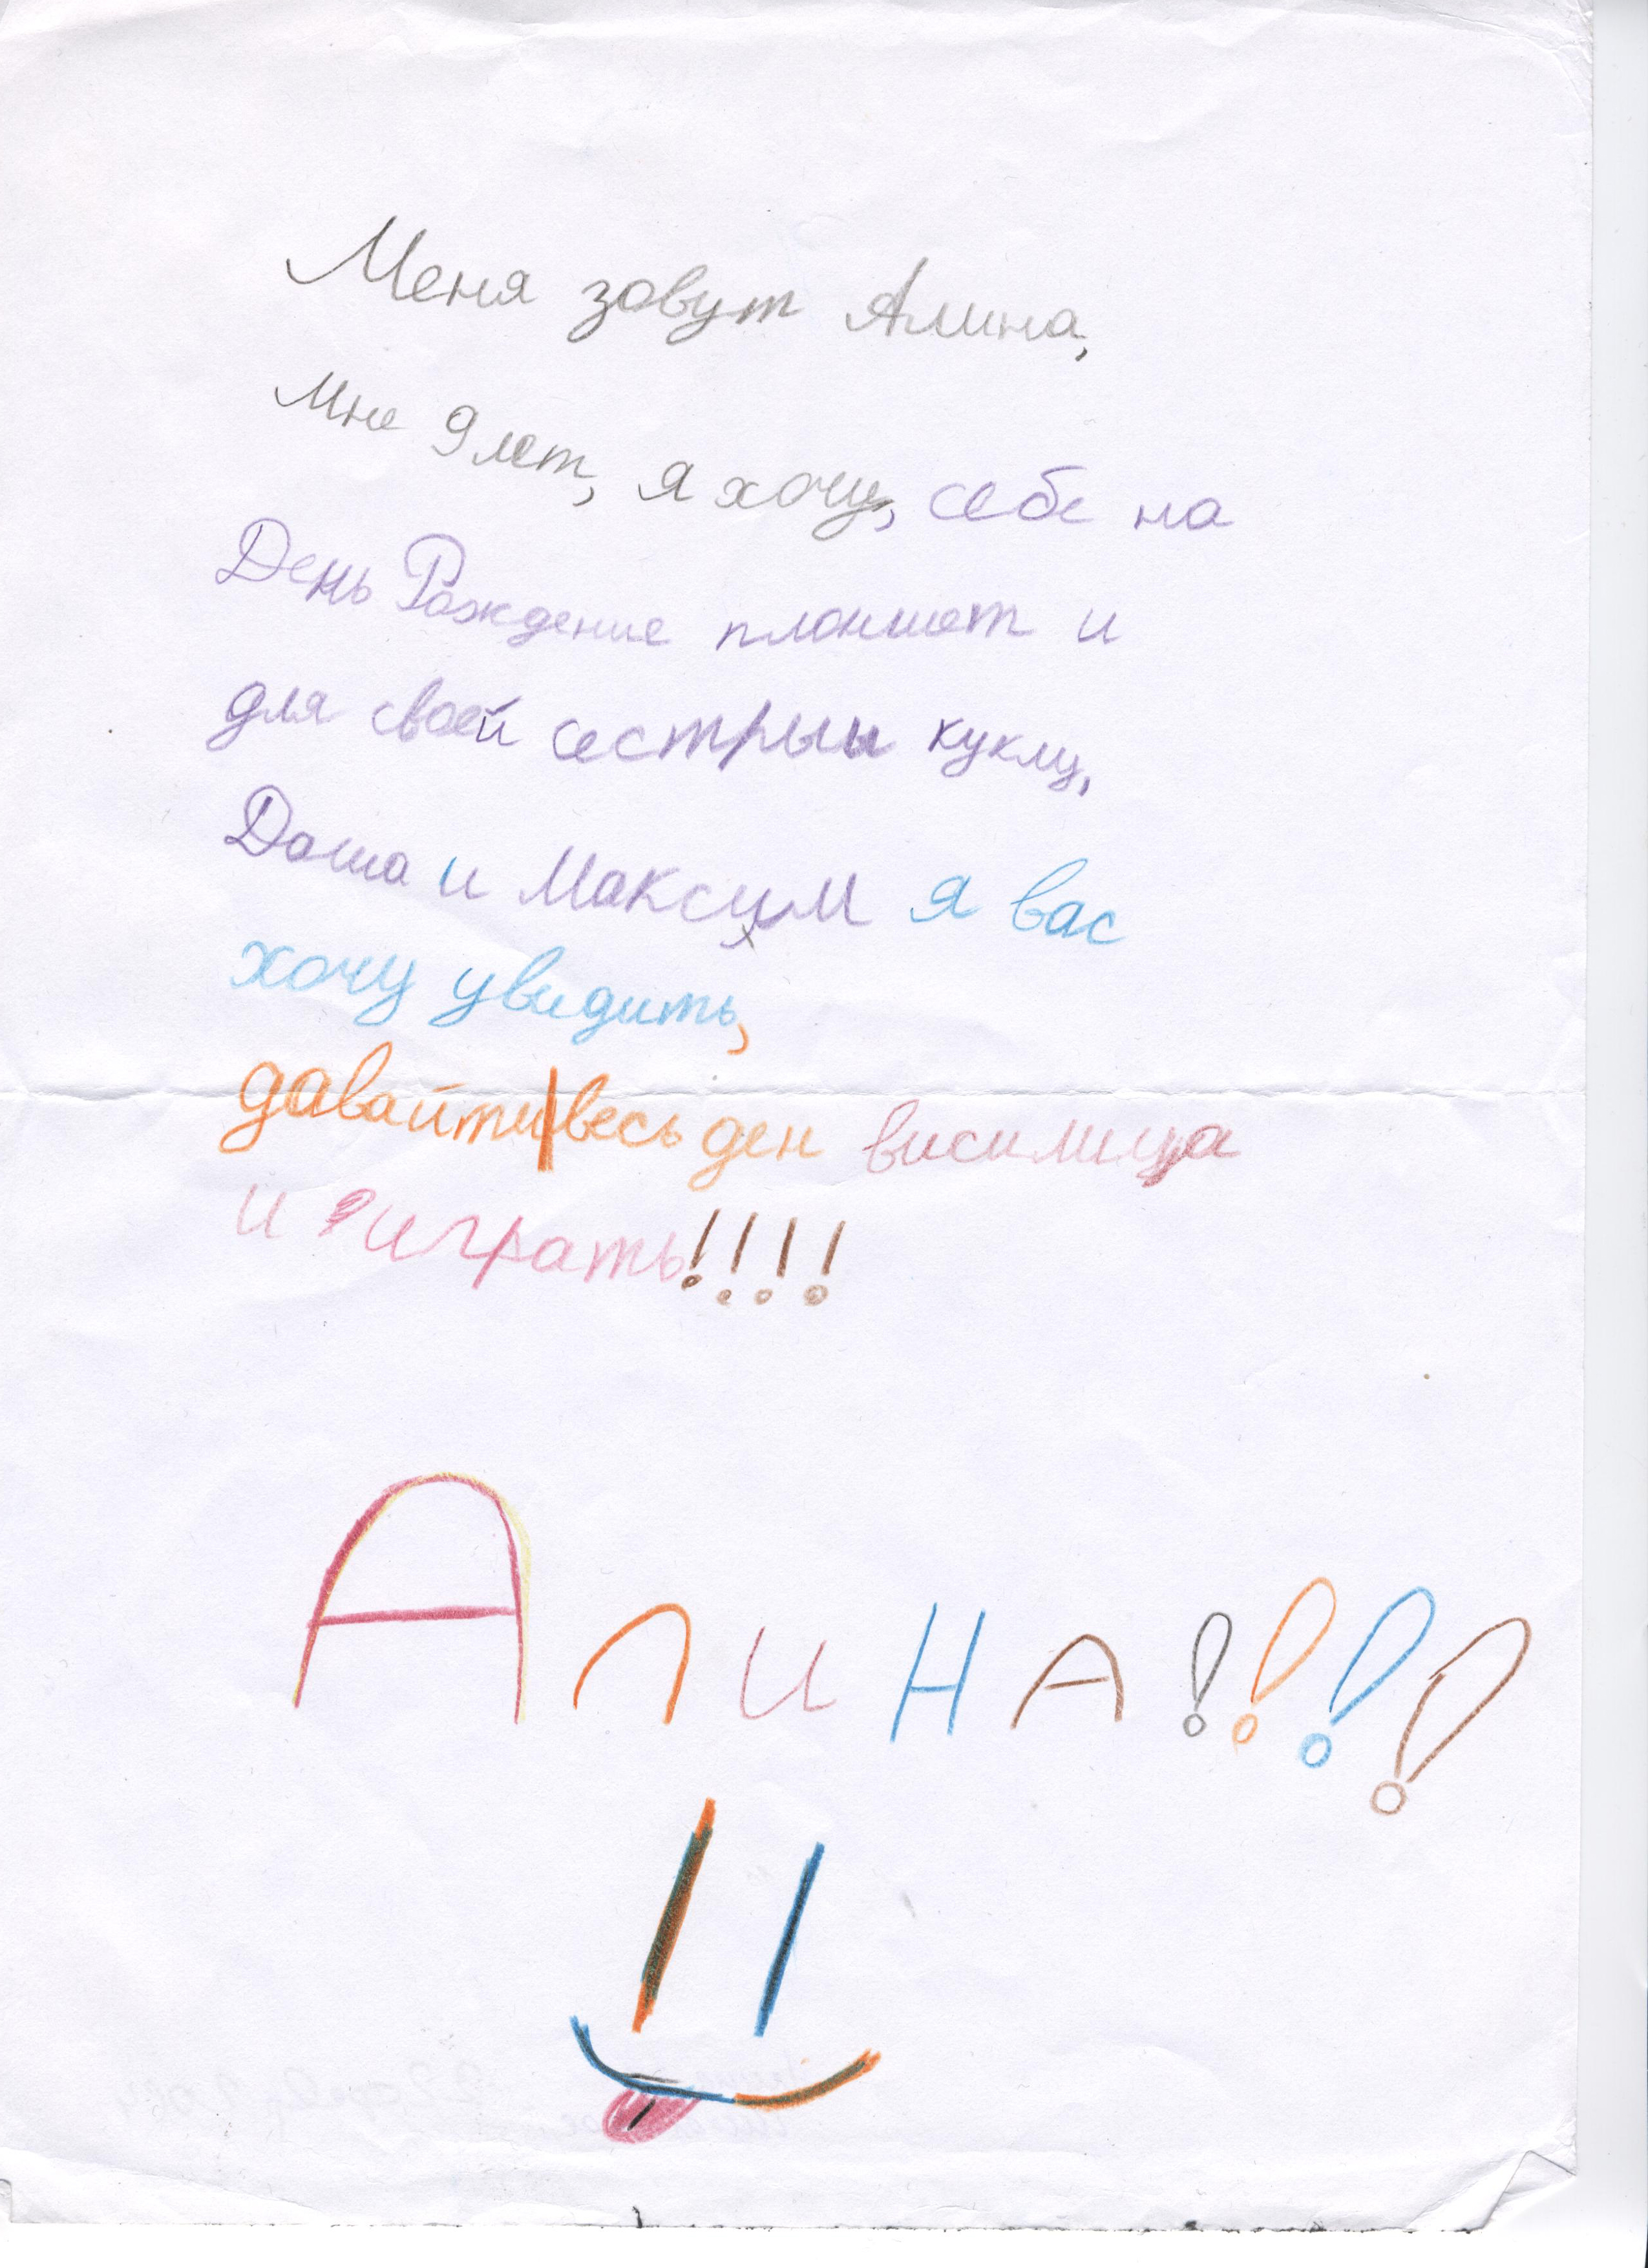 Меня зовут Алина,
мне 9 лет, я хочу, себе на
День Рождение планшет и
для своей сестрыи куклу,
Даша и Максим я вас
хочу увидить,
давайти весь ден висилица
и играть!!!!
АлиНА!!!!